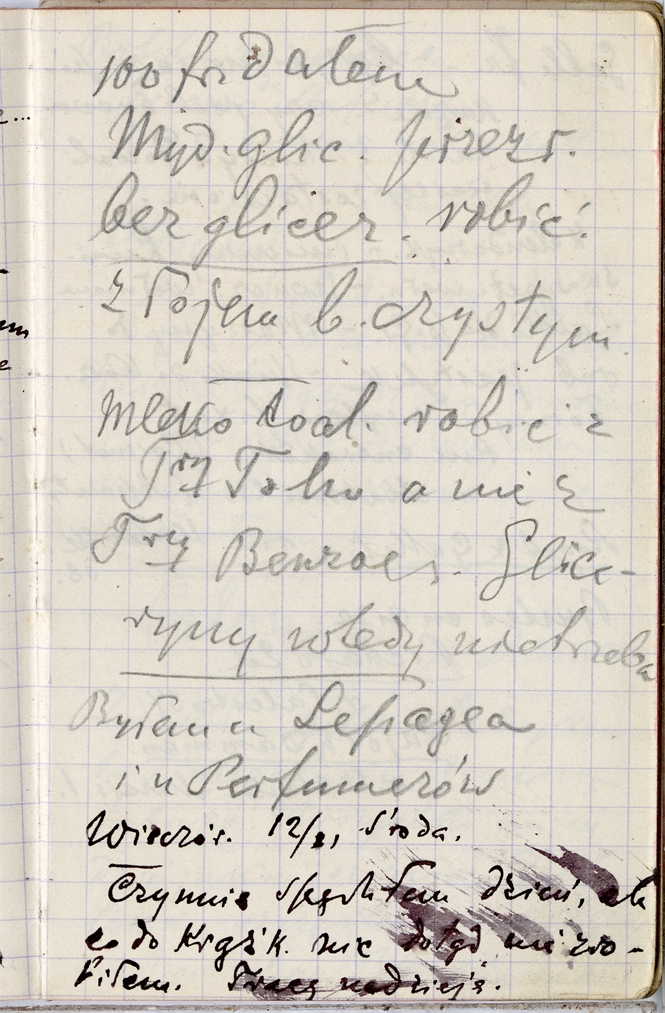 100 fr. dałem
Mydł. glic. przezr.
bez glicer. robić.
z łojem b. czystym
Mleko toal. robić z
Try Tolu a nie z
Try Benzoes. Glice-
ryny wtedy nietrzeba
Byłem u Lepagea
i u Perfumerów
Wieczór. 12/2, środa.
Czynnie spędziłem dzień, ale
co do Książk. nic dotąd nie zro-
biłem. Tracę nadzieję.